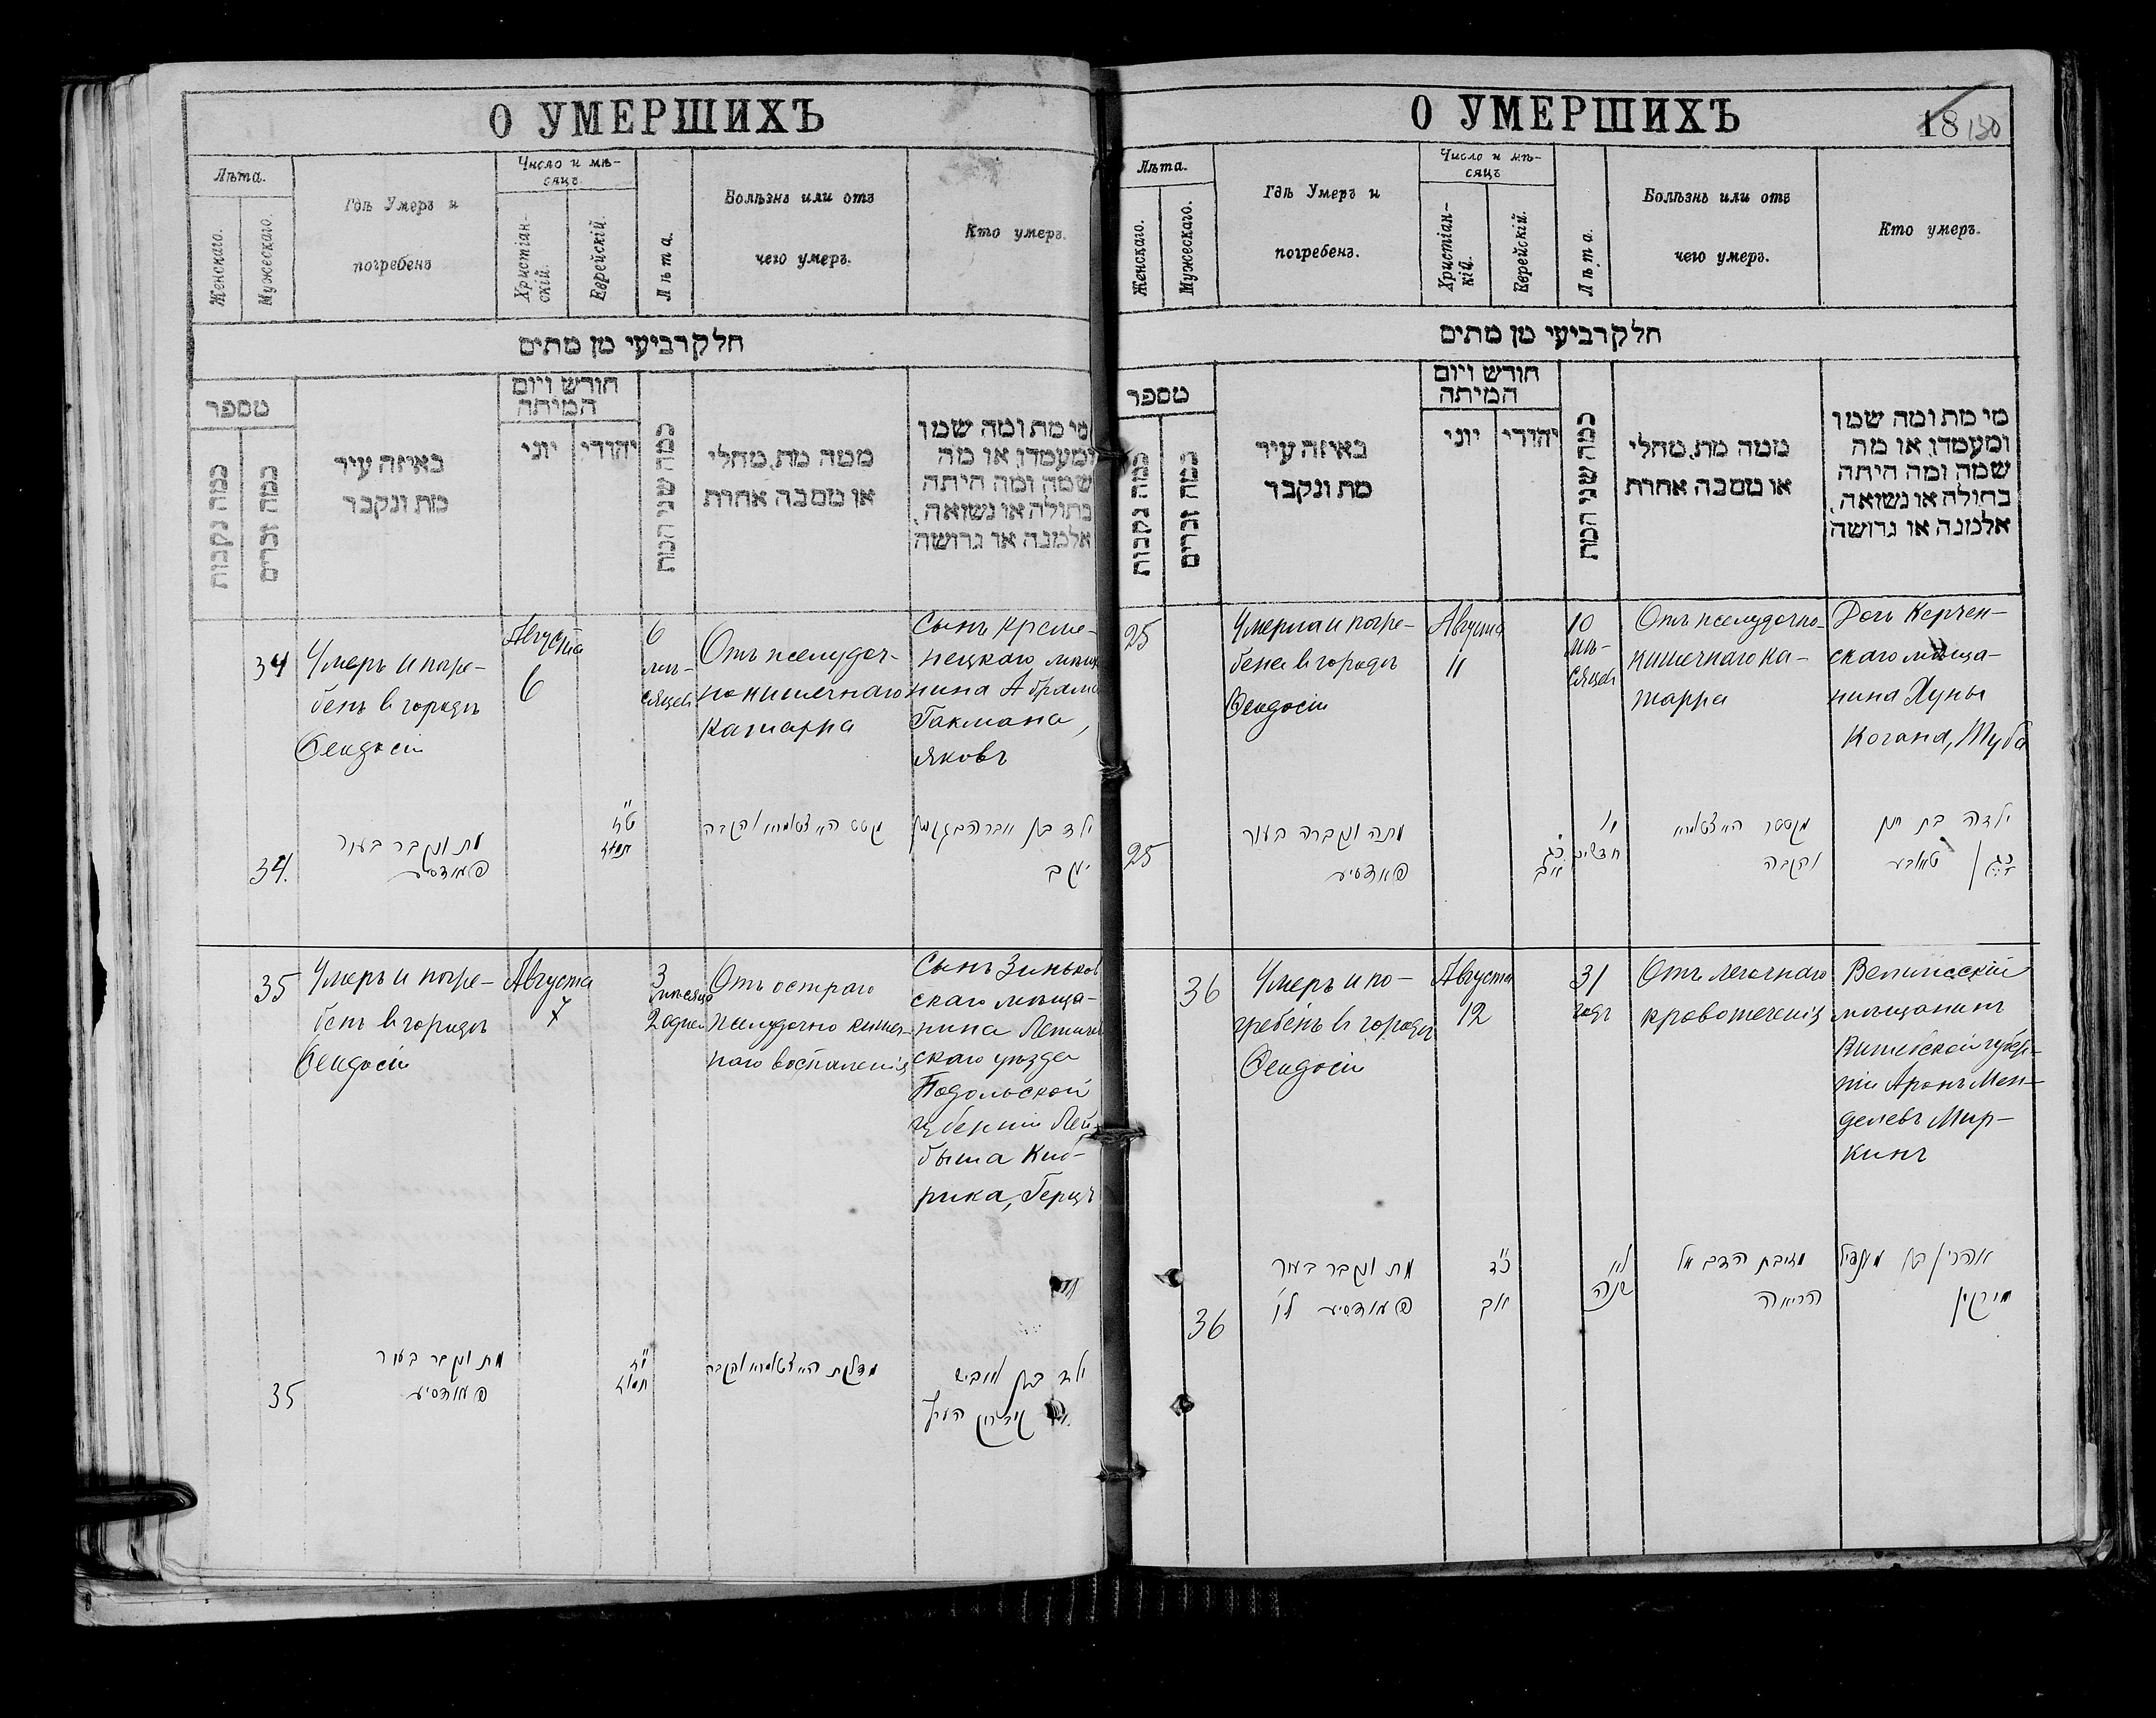 О УМЕРШИХЪ
Лѣта.
Женскаго.
Мужескаго.
Гдѣ Умеръ и
погребенъ
Число и мѣ-
сяцъ.
Христіан-
скій.
Еврейскій.
Лѣта.
Болѣзнь или отъ
чего умеръ.
Кто умеръ.
חלק רביעי מן מתים
מספר
כמה נקבות
כמה זכרים
באיזה עיר
מת ונקבר
חודש ויום
המיתה
יוני
יהודי
כמה שני המת
ממה מת, מחלי
או מסבה אחרת
מי מת ומה שמו
ומעמדו, או מה
שמה ומה היתה
בתולה או נשואה,
אלמנה או גרושה
34
Умеръ и погре-
бенъ в городѣ
Ѳеодосіи
Августа
6
6
мѣ-
сяцевъ
Отъ желудоч-
но кишечнаго
катарра
Сынъ Креме-
нецкаго мѣща
нина Абрама
Гакмана,
Яковъ
34.
מת ונקבר בעיר
פעאדסיע
ילד בן
יעקב
35
Умеръ и погре-
бенъ в городѣ
Ѳеодосіи
Августа
7
3
мѣсяца
2 дней
Отъ остраго
желудочно кишеч-
наго воспаленія
Сынъ Зиньков
скаго мѣща-
нина Летичев
скаго уѣзда
Подольской
губерніи Лей-
быша Киб-
рика, Герцъ
35
מת ונקבר בעיר
פעאדסיע
О УМЕРШИХЪ
18 130
Лѣта.
Женскаго.
Мужескаго.
Гдѣ Умеръ и
погребенъ.
Число и мѣ-
сяцъ
Христіан-
кій.
Еврейскій.
Лѣта.
Болѣзнь или отъ
чего умеръ.
Кто умеръ.
חלק רביעי מן מתים
מספר
כמה נקבות
כמה זכרים
באיזה עיר
מת ונקבר
חודש ויום
המיתה
יוני
יהודי
כמה שני המת
ממה מת, מחלי
או מסבה אחרת
מי מת ומה שמו
ומעמדו, או מה
שמה ומה היתה
בתולה או נשואה,
אלמנה או גרושה
25
Умерла и погре-
бена в городѣ
Ѳеодосіи
Августа
11
10
мѣ-
сяцевъ
Отъ желудочно-
кишечнаго ка-
тарра
Дочь Керчен-
скаго мѣща-
нина Хуны
Когана, Туба
25
מתה ונקברה בעיר
פעאדסיע
כג
אב
חדשים
והקבה
ילדה בת
טאבע
36
Умеръ и по-
гребенъ в городѣ
Ѳеодосіи
Августа
12
31
годъ
Отъ легочнаго
кровотеченія
Велижскій
мѣщанинъ
Витебской губер-
ніи Аронъ Мен-
делевъ Мир-
кинъ
36
מת ונקבר בעיר
פעאדסיע
כ"ד
אב
ל"א
שנה
מזיבת הדם אל
הריאה
אהרן בן מענדיל
מירקין